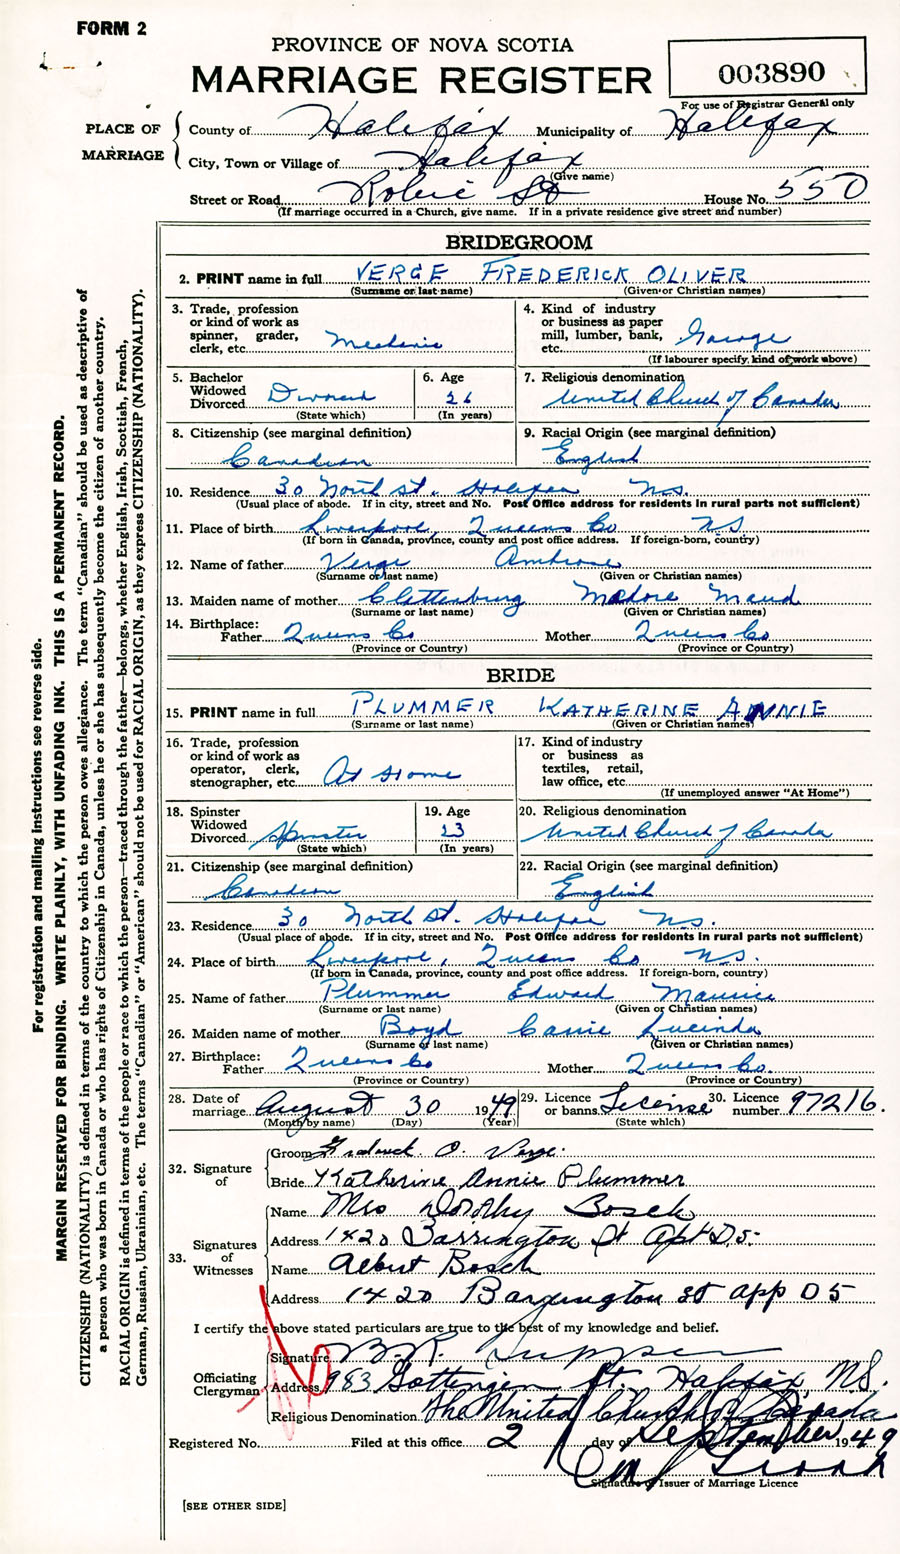 FORM 2
PROVINCE OF NOVA SCOTIA
MARRIAGE REGISTER
003890
For use of Registrar General only
PLACE OF MARRIAGE
County of Halifax Municipality of Halifax
City, Town or Village of Halifax
(Give name)
Street or Road Robie St House No. 550
(If marriage occurred in a Church, give name. If in a private residence give street and number)
BRIDEGROOM
2. PRINT name in full VERGE FREDERICK OLIVER
(Surname or last name) (Given or Christian names)
3. Trade, profession or kind of work as spinner, grader, clerk, etc. Mechanic
4. Kind of industry or business as paper mill, lumber, bank, etc. Garage
(If labourer specify kind of work above)
5. Bachelor Widowed Divorced Divorced
(State which)
6. Age 26
(In years)
7. Religious denomination United Church of Canada
8. Citizenship (see marginal definition) Canadian
9. Racial Origin (see marginal definition) English
10. Residence 30 North St. Halifax N.S.
(Usual place of abode. If in city, street and No. Post Office address for residents in rural parts not sufficient)
11. Place of birth Liverpool, Queens Co NS
(If born in Canada, province, county and post office address. If foreign-born, country)
12. Name of father Verge Ambrose
(Surname or last name) (Given or Christian names)
13. Maiden name of mother Clattenburg Madore Maud
(Surname or last name) (Given or Christian names)
14. Birthplace: Father Queens Co Mother Queens Co
(Province or Country) (Province or Country)
BRIDE
15. PRINT name in full PLUMMER KATHERINE ANNIE
(Surname or last name) (Given or Christian names)
16. Trade, profession or kind of work as operator, clerk, stenographer, etc. At Home
17. Kind of industry or business as textiles, retail, law office, etc.
(If unemployed answer "At Home")
18. Spinster Widowed Divorced Spinster
(State which)
19. Age 23
(In years)
20. Religious denomination United Church of Canada
21. Citizenship (see marginal definition) Canadian
22. Racial Origin (see marginal definition) English
23. Residence 30 North St. Halifax N.S.
(Usual place of abode. If in city, street and No. Post Office address for residents in rural parts not sufficient)
24. Place of birth Liverpool, Queens Co NS.
(If born in Canada, province, county and post office address. If foreign-born, country)
25. Name of father Plummer Edward Maurice
(Surname or last name) (Given or Christian names)
26. Maiden name of mother Boyd Carrie Lucinda
(Surname or last name) (Given or Christian names)
27. Birthplace: Father Queens Co Mother Queens Co.
(Province or Country) (Province or Country)
28. Date of marriage August 30 1949
(Month by name) (Day) (Year)
29. Licence or banns. License
(State which)
30. Licence number. 97216.
32. Signature of
Groom Fredrick O. Verge.
Bride Katherine Annie Plummer
33. Signatures of Witnesses
Name Mrs Dorothy Bosch
Address 1420 Barrington St Apt D5
Name Albert Bosch
Address 1420 Barrington St app D5
I certify the above stated particulars are true to the best of my knowledge and belief.
Officiating Clergyman
Signature B. R. Tupper
Address 983 Gottingen St. Halifax N.S.
Religious Denomination The United Church of Canada
Registered No. Filed at this office 2 day of September 1949
Signature of Issuer of Marriage Licence
[SEE OTHER SIDE]
For registration and mailing instructions see reverse side.
MARGIN RESERVED FOR BINDING. WRITE PLAINLY, WITH UNFADING INK. THIS IS A PERMANENT RECORD.
CITIZENSHIP (NATIONALITY) is defined in terms of the country to which the person owes allegiance. The term "Canadian" should be used as descriptive of
a person who was born in Canada or who has rights of Citizenship in Canada, unless he or she has subsequently become the citizen of another country.
RACIAL ORIGIN is defined in terms of the people or race to which the person—traced through the father—belongs, whether English, Irish, Scottish, French,
German, Russian, Ukrainian, etc. The terms "Canadian" or "American" should not be used for RACIAL ORIGIN, as they express CITIZENSHIP (NATIONALITY).